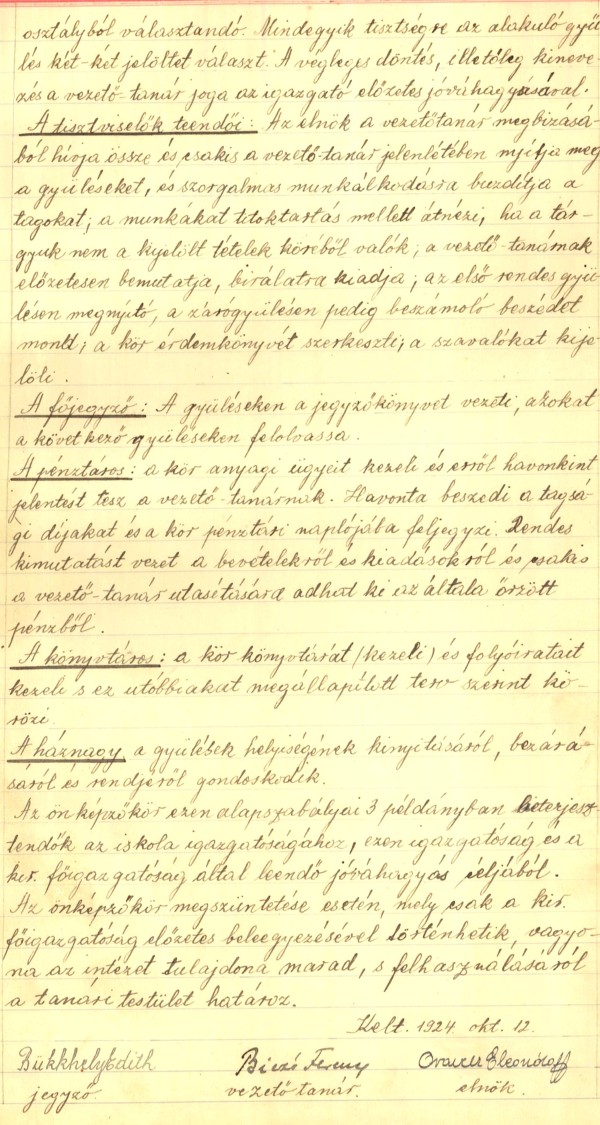 osztályból választandó. Mindegyik tisztségre az alakuló gyű
lés két-két jelöltet választ. A végleges döntés, illetőleg kineve-
zés a vezető-tanár joga az igazgató előzetes jóváhagyásával.
A tisztviselők teendői: Az elnök a vezetőtanár megbizásá-
ból hivja össze és csakis a vezető-tanár jelenlétében nyitja meg
a gyüléseket, és szorgalmas munkálkodásra buzdítja a
tagokat; a munkákat titoktartás mellett átnézi, ha a tár-
gyuk nem a kijelölt tételek köréből valók; a vezető-tanárnak
előzetesen bemutatja, birálatra kiadja; az első rendes gyü-
lésen megnyitó, a zárógyülésen pedig beszámoló beszédet
mond; a kör érdemkönyvét szerkeszti; a szavalókat kije-
löli.
A főjegyző: A gyüléseken a jegyzőkönyvet vezeti, azokat
a következő gyüléseken felolvassa.
A pénztáros: a kör anyagi ügyeit kezeli és erről havonkint
jelentést tesz a vezető-tanárnak. Havonta beszedi a tagsá-
gi díjakat és a kör pénztári naplójába feljegyzi. Rendes
kimutatást vezet a bevételekről és kiadásokról és csakis
a vezető-tanár utasítására adhat ki az általa őrzött
pénzből.
A könyvtáros: a kör könyvtárát (kezeli) és folyóiratait
kezeli s ez utóbbiakat megállapított terv szerint kö-
rözi.
A háznagy a gyülések helyiségének kinyitásáról, bezárá-
sáról és rendjéről gondoskodik.
Az önképzőkör ezen alapszabályai 3 példányban beterjesz-
tendők az iskola igazgatóságához, ezen igazgatóság és a
kir. főigazgatóság által leendő jóváhagyás céljából.
Az önképzőkör megszüntetése esetén, mely csak a kir.
főigazgatóság előzetes beleegyezésével történhetik, vagyo-
na az intézet tulajdona marad, s felhasználásáról
a tanári testület határoz.
Kelt. 1924 okt. 12.
Bükkhelyi Edith
jegyző
Ferenc
vezető tanár.
elnök.